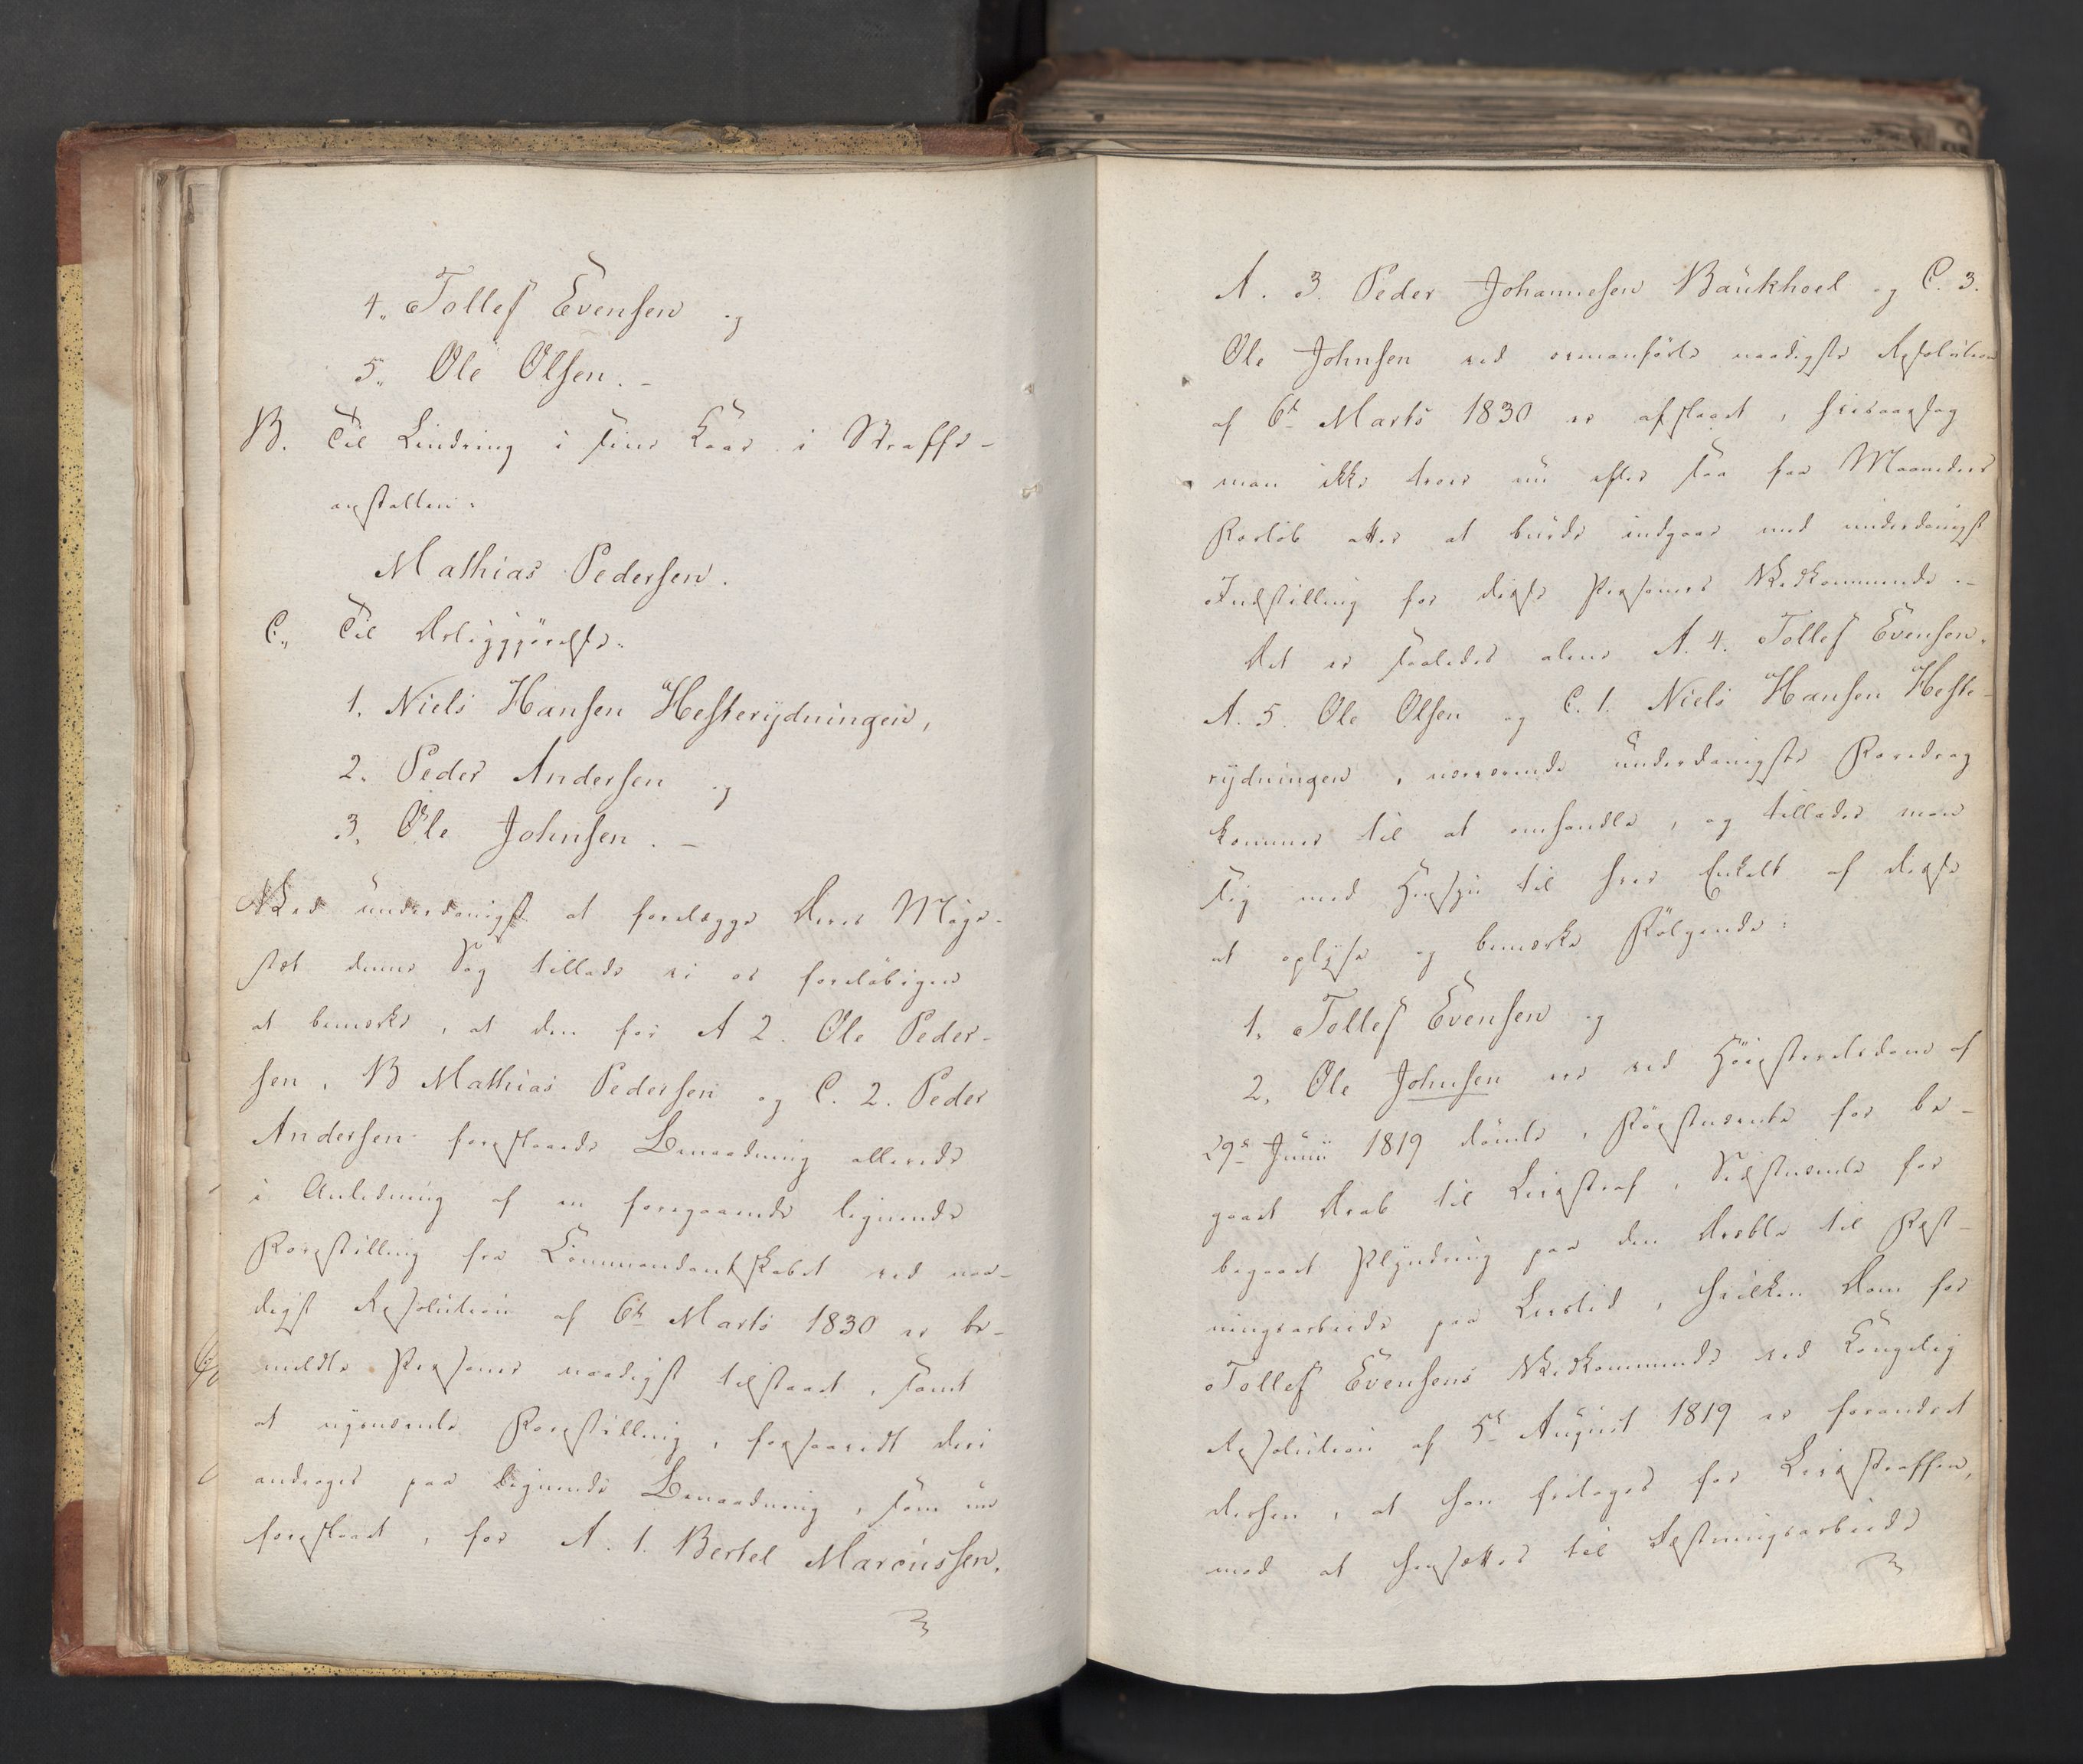 4. Tollef Evensen og
5. Ole Olsen. –
B. Til Lindring i sine Kaar i Straffe-
anstalten:
Mathias Pedersen.
C. Til Løsliggjørelse:
1. Niels Hansen Hesterydningen,
2. Peder Andersen og
3. Ole Johnsen. –
Ved underdanigst at forelægge Deres Maje-
stæt denne Sag tillade vi os foreløbigen
at bemærke, at den for A 2. Ole Peder-
sen, B Mathias Pedersen og C. 2. Peder
Andersen foreslaaede Benaadning allerede
i Anledning af en foregaaende lignende
Forestilling fra Commandantskabet ved naa-
digst Resolution af 6te Marts 1830 er be-
meldte Personer naadigst tilstaaet, samt
at nysnævnte Forestilling, forsaavidt deri
androges paa lignende Benaadning, som nu
foreslaaet, for A. 1. Bertel Marcussen,
A. 3. Peder Johannesen Baukhoel og C. 3.
Ole Johnsen ved ovenanførte naadigste Resolution
af 6te Marts 1830 er afslaaet, hvisaarsag
man ikke troer nu efter saa faa Maaneders
Forløb atter at burde indgaae med underdanigst
Indstilling for disse Personers Vedkommende. –
Det er saaledes alene A. 4. Tollef Evensen,
A. 5. Ole Olsen og C. 1. Niels Hansen Heste-
rydningen, nærværende underdanigste Foredrag
kommer til at omhandle, og tillader man
sig med Hensyn til hver Enkelt af disse
at oplyse og bemærke Følgende:
1. Tollef Evensen og
2. Ole Johnsen ere ved Høiesteretsdom af
29de Junii 1819 dømte, Førstnævnte for be-
gaaet Drab til Livsstraf, Sidstnævnte for
begaaet Plyndring paa den Dræbte til Fæst-
ningsarbeide paa Livstid, hvilken Dom for
Tollef Evensens Vedkommende ved Kongelig
Resolution af 5te August 1819 er forandret
derhen, at han fritages for Livsstraffen,
mod at hensættes til Fæstningsarbeide